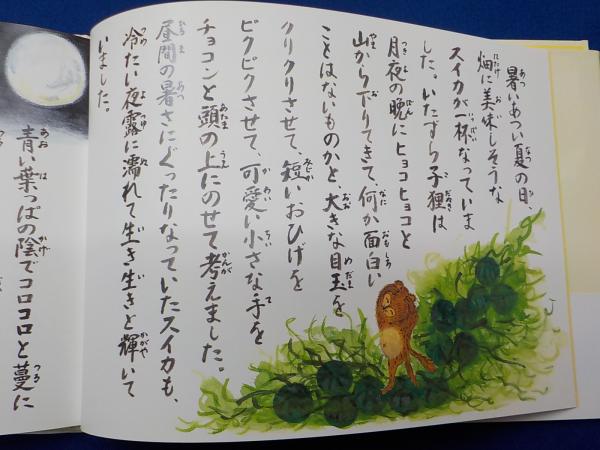 暑いあつい夏の日、
畑に美味しそうな
スイカが一杯なっていま
した。いたずら子狸は
月夜の晩にヒョコヒョコと
山から下りてきて、何か面白い
ことはないものかと、大きな目玉を
クリクリさせて、短いおひげを
ピクピクさせて、可愛い小さな手を
チョコンと頭の上にのせて考えました。
昼間の暑さにぐったりなっていたスイカも、
冷たい夜露に濡れて生き生きと輝いて
いました。
青い葉っぱの陰でコロコロと蔓に